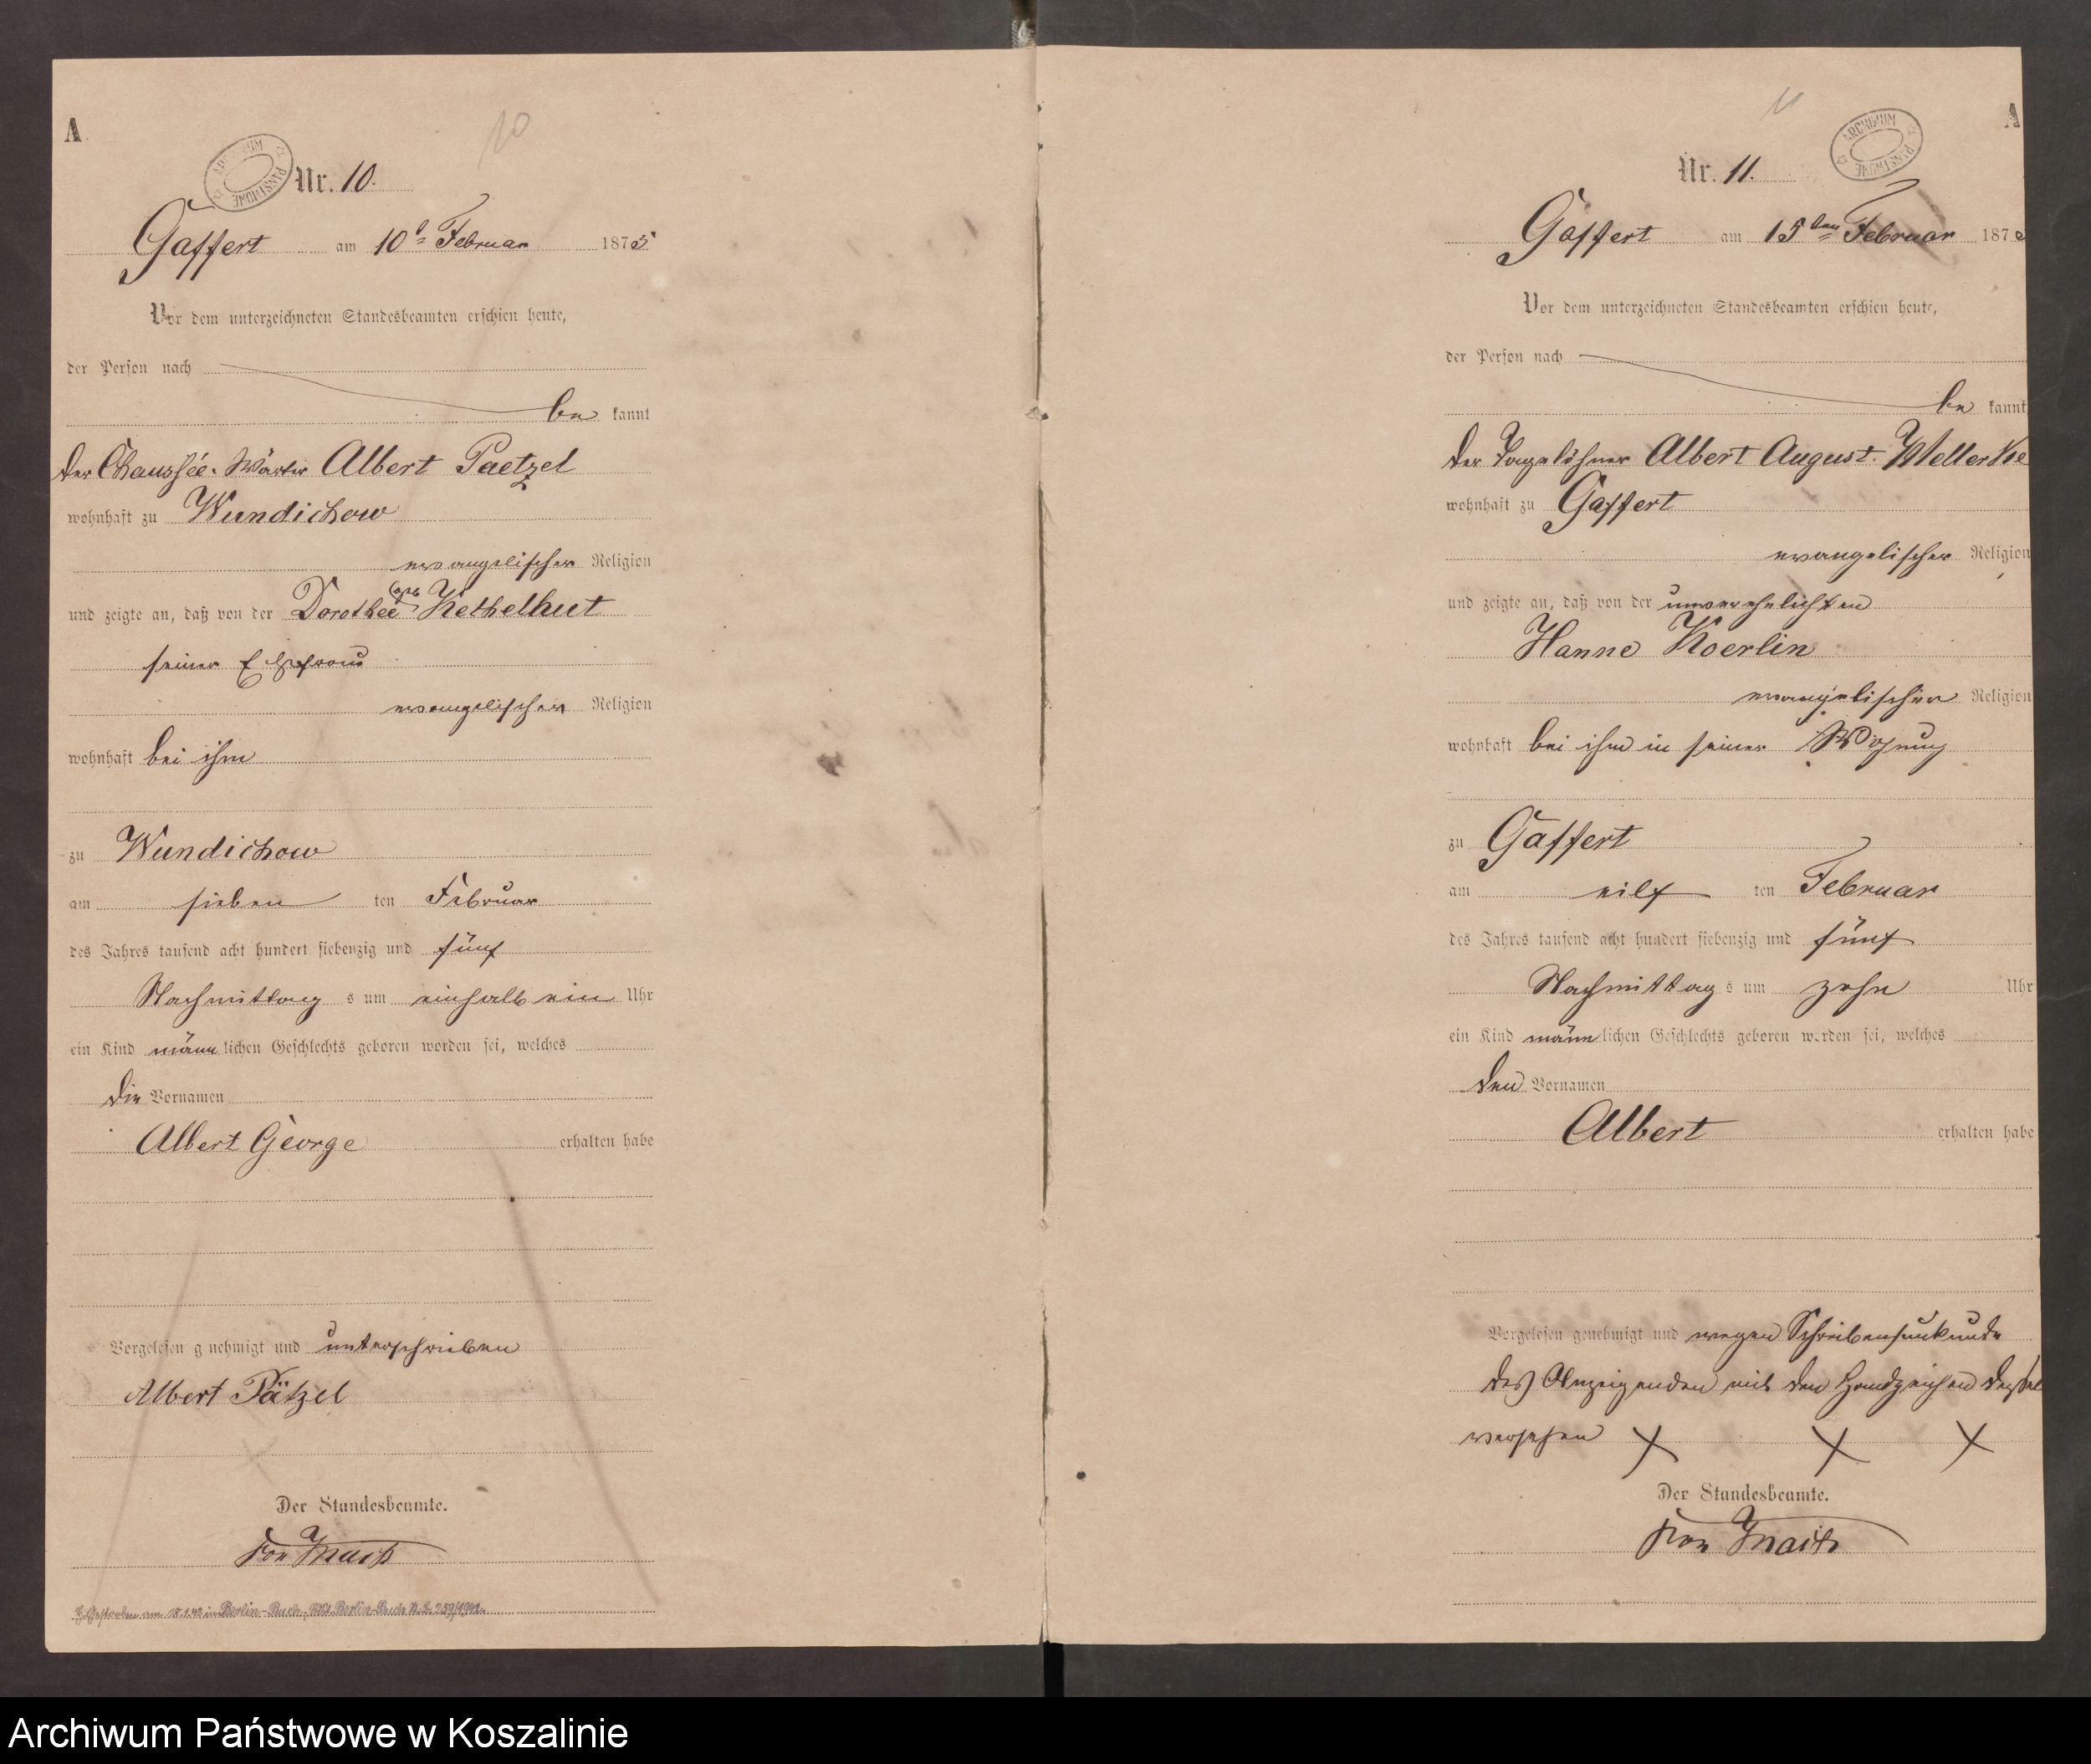 A
10
ARCHIWUM PAŃSTWOWE
Nr. 10.
Gaffert am 10t Februar 1875
Vor dem unterzeichneten Standesbeamten erschien heute,
der Person nach
be kannt
der Chaussée-Wärter Albert Paetzel
wohnhaft zu Wundichow
evangelischer Religion
und zeigte an, daß von der Dorothee geb Kethelhut
seiner Ehefrau
evangelischer Religion
wohnhaft bei ihm
zu Wundichow
am sieben ten Februar
des Jahres tausend acht hundert siebenzig und fünf
Nachmittag s um einhalb ein Uhr
ein Kind männ lichen Geschlechts geboren worden sei, welches
die Vornamen
Albert George erhalten habe
Vorgelesen genehmigt und unterschrieben
Albert Pätzel
Der Standesbeamte.
von
Gestorben am 18.1.41 in Berlin-Buch, Berlin-Buch 259/1941.
A
11
ARCHIWUM PAŃSTWOWE
Nr. 11.
Gaffert am 15ten Februar 187
Vor dem unterzeichneten Standesbeamten erschien heute,
der Person nach
be kannt
der Tagelöhner Albert August Mellerke
wohnhaft zu Gaffert
evangelischer Religion
und zeigte an, daß von der unverehelichten
Hanne Koerlin
evangelischer Religion
wohnhaft bei ihm in seiner Wohnung
zu Gaffert
am eilf ten Februar
des Jahres tausend acht hundert siebenzig und fünf
Nachmittag s um zehn Uhr
ein Kind männ lichen Geschlechts geboren worden sei, welches
den Vornamen
Albert erhalten habe
Vorgelesen genehmigt und wegen Schreibensunkunde
des Anzeigenden mit den Handzeichen dessel
versehen X X X
Der Standesbeamte.
von
Archiwum Państwowe w Koszalinie